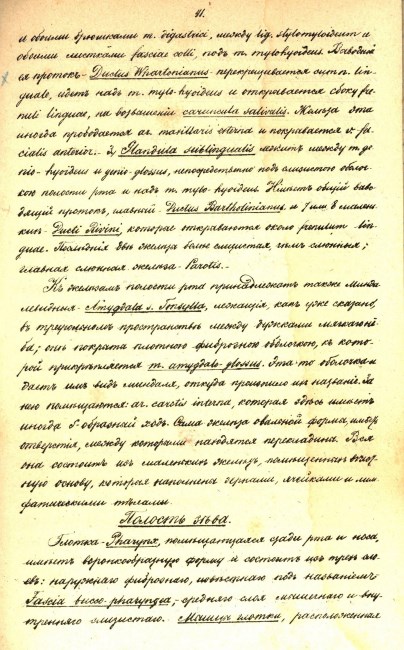 41.
и обоими брюшками m. digastrici, между lig. stylomyloideum и
обоими листками fasciae colli, подъ m. mylohyoideus. Выводной
ея протокъ - Ductus Whartonianus - перекрещивается съ n. lin-
guale, идетъ надъ m. mylo-hyoideus и открывается сбоку fre-
nuli linguae, на возвышении caruncula salivalis. Железа эта
иногда прободается ar. maxillaris externa и покрывается v. fa-
cialis anterior. - 3, Glandula sublingualis лежитъ между m. ge-
nio-hyoideus и genio-glossus, непосредственно подъ слизистою оболоч-
кою полости рта и надъ m. mylo-hyoideus. Имѣетъ общій выво-
дящій протокъ, главный - Ductus Bartholinianus и 7 или 8 малень-
кихъ - Ducti Rivini, которые открываются около frenulum lin-
guae. Послѣднія двѣ железы болѣе слизистыя, чѣмъ слюнныя;
главная слюнная железа - Parotis. -
Къ железамъ полости рта принадлежатъ также Минда-
левидныя - Amygdala s. Tonsilla, лежащія, какъ уже сказано,
въ треугольномъ пространствѣ между дужками мягкаго нё-
ба; онѣ покрыта плотною фиброзною оболочкою, къ кото-
рой прикрѣпляется m. amygdalo-glossus. Эта-то оболочка и
даетъ имъ видъ миндаля, откуда произошло ихъ названіе. За
нею помѣщаются: ar. carotis interna, которая здѣсь имѣетъ
иногда S-образный ходъ. Сама железа овальной формы, имѣетъ
отверстія, между которыми находятся перекладины. Вся
она состоитъ изъ маленькихъ железъ, помѣщенныхъ въ
основу, которая наполнена зернами, ячейками и лим-
фатическими тѣлами.
Полость зѣва.
Глотка - Pharynx, помѣщающаяся сзади рта и носа,
имѣетъ воронкообразную форму и состоитъ изъ трехъ сло-
евъ: наружнаго фибрознаго, извѣстнаго подъ названіемъ
Fascia bucco-pharyngea, - средняго слоя мышечнаго и вну-
тренняго слизистаго. Мышцы глотки, расположенныя